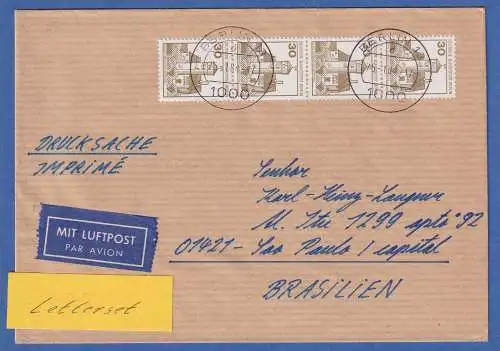 30 30 30
BERLIN 1 BERLIN 1
1000 1000
DRUCKSACHE
IMPRIMÉ
Senhor
Karl-Heinz-Langner
M. Stre 1299 apto 92
01421- Sao Paulo / capital
BRASILIEN
MIT LUFTPOST
PAR AVION
Letterset